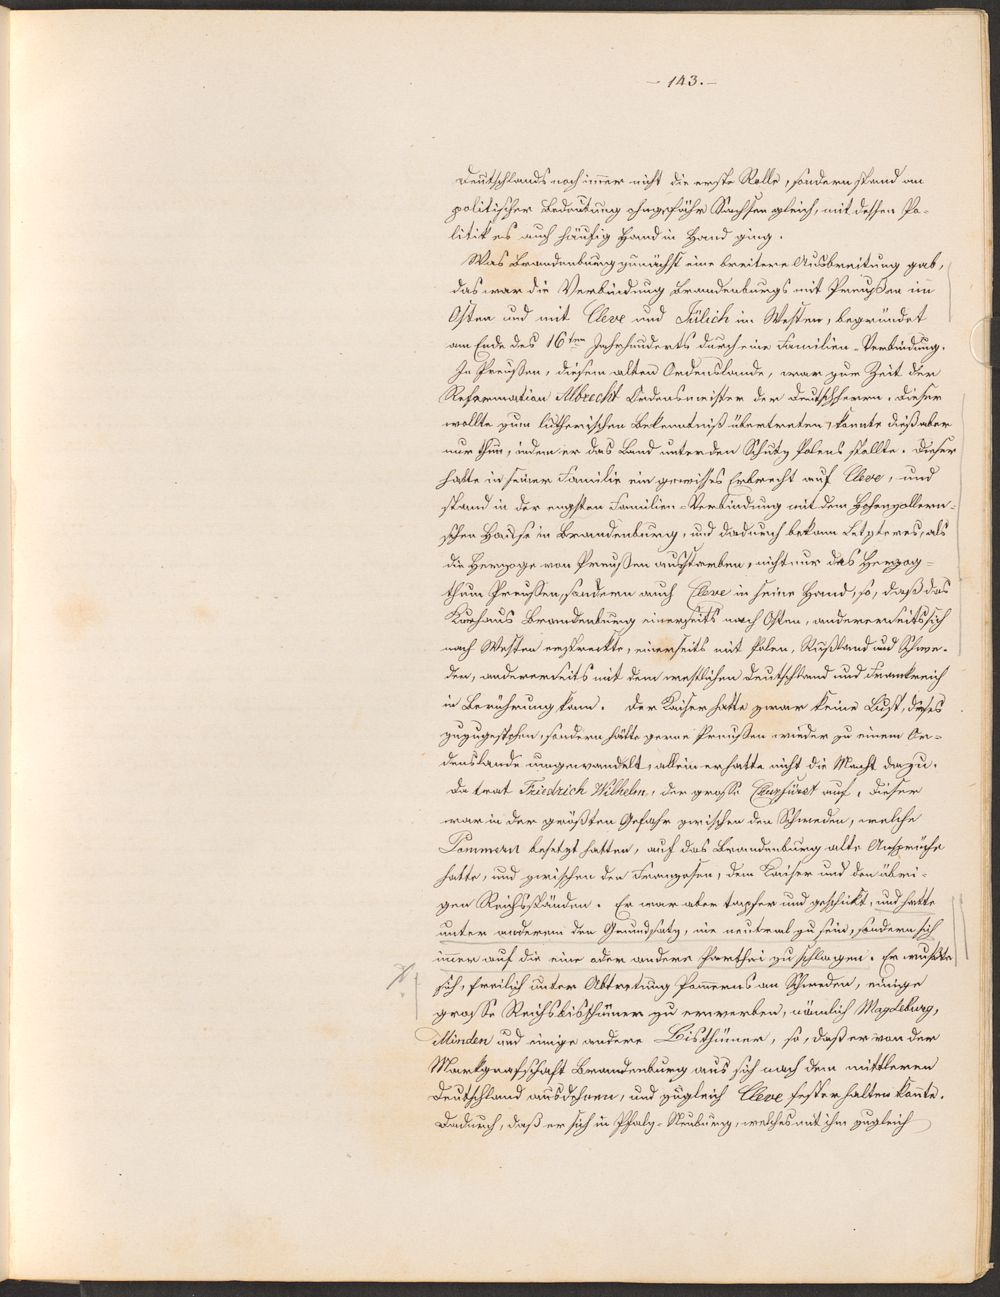 – 143. –
Deutschlands noch immer nicht die erste Rolle, sondern stand an
politischer Bedeutung ohngefähr Sachsen gleich, mit dessen Po-
litik es auch häufig Hand in Hand ging.
Was Brandenburg zunächst eine breitere Ausbreitung gab,
das war die Verbindung Brandenburgs mit Preußen im
Osten und mit Cleve und Jülich im Westen, begründet
am Ende des 16ten Jahrhunderts durch eine Familien-Verbindung.
In Preußen, diesem alten Ordenslande, war zur Zeit der
Reformation Albrecht Ordensmeister der Deutschherrn. Dieser
wollte zum lutherischen Bekenntniß übertreten, konnte dieß aber
nur thun, indem er das Land unter den Schutz Polens stellte. Dieser
hatte in seiner Familie ein gewisses Erbrecht auf Cleve, und
stand in der engsten Familien-Verbindung mit dem Hohenzollern-
schen Hause in Brandenburg, und dadurch bekam Letzteres, als
die Herzoge von Preußen ausstarben, nicht nur das Herzog-
thum Preußen, sondern auch Cleve in seine Hand, so, daß das
Kurhaus Brandenburg einerseits nach Osten, andererseits sich
nach Westen erstreckte, einerseits mit Polen, Rußland und Schwe-
den, andererseits mit dem westlichen Deutschland und Frankreich
in Berührung kam. Der Kaiser hatte zwar keine Lust, dieses
zuzugestehen, sondern hätte gerne Preußen wieder zu einem Or-
denslande umgewandelt, allein er hatte nicht die Macht dazu.
Da trat Friedrich Wilhelm, der große Churfürst auf. Dieser
war in der größten Gefahr zwischen den Schweden, welche
Pommern besetzt hatten, auf das Brandenburg alte Ansprüche
hatte, und zwischen den Franzosen, dem Kaiser und den übri-
gen Reichsständen. Er war aber tapfer und geschickt, und hatte
unter anderem den Grundsatz, nie neutral zu sein, sondern sich
immer auf die eine oder andere Parthei zu schlagen. Er wußte
sich, freilich unter Abtretung Pommerns an Schweden, einige
große Reichsbisthümer zu erwerben, nämlich Magdeburg,
Minden und einige andere Bisthümer, so, daß er von der
Markgrafschaft Brandenburg aus sich nach dem mittleren
Deutschland ausdehnen, und zugleich Cleve fester halten konnte.
Dadurch, daß er sich in Pfalz-Neuburg, welches mit ihm zugleich